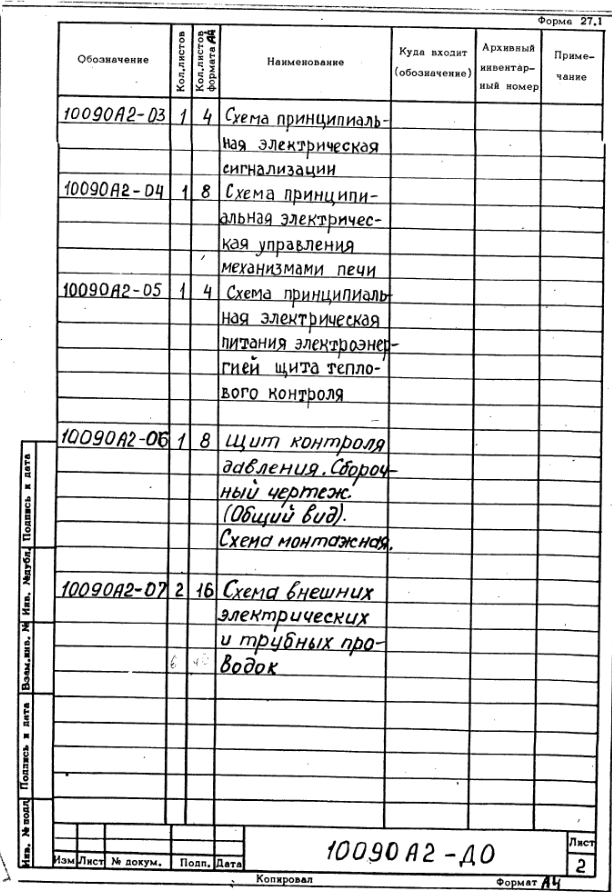 Форма 27.1
Обозначение Кол.листов Кол.листов формата А4 Наименование Куда входит (обозначение) Архивный инвентарный номер Примечание
10090А2-03 1 4 Схема принципиаль-
ная электрическая
сигнализации
10090А2-04 1 8 Схема принципи-
альная электричес-
кая управления
механизмами печи
10090А2-05 1 4 Схема принципиаль-
ная электрическая
питания электроэнер-
гией щита тепло-
вого контроля
10090А2-06 1 8 Щит контроля
давления. Сбороч-
ный чертеж.
(Общий вид).
Схема монтажная.
10090А2-07 2 16 Схема внешних
электрических
и трубных про-
6 водок
Инв. № подл Подпись и дата Взам.инв. № Инв. №дубл. Подпись и дата
10090А2-ДО
Лист
2
Изм Лист № докум. Подп. Дата
Копировал Формат А4